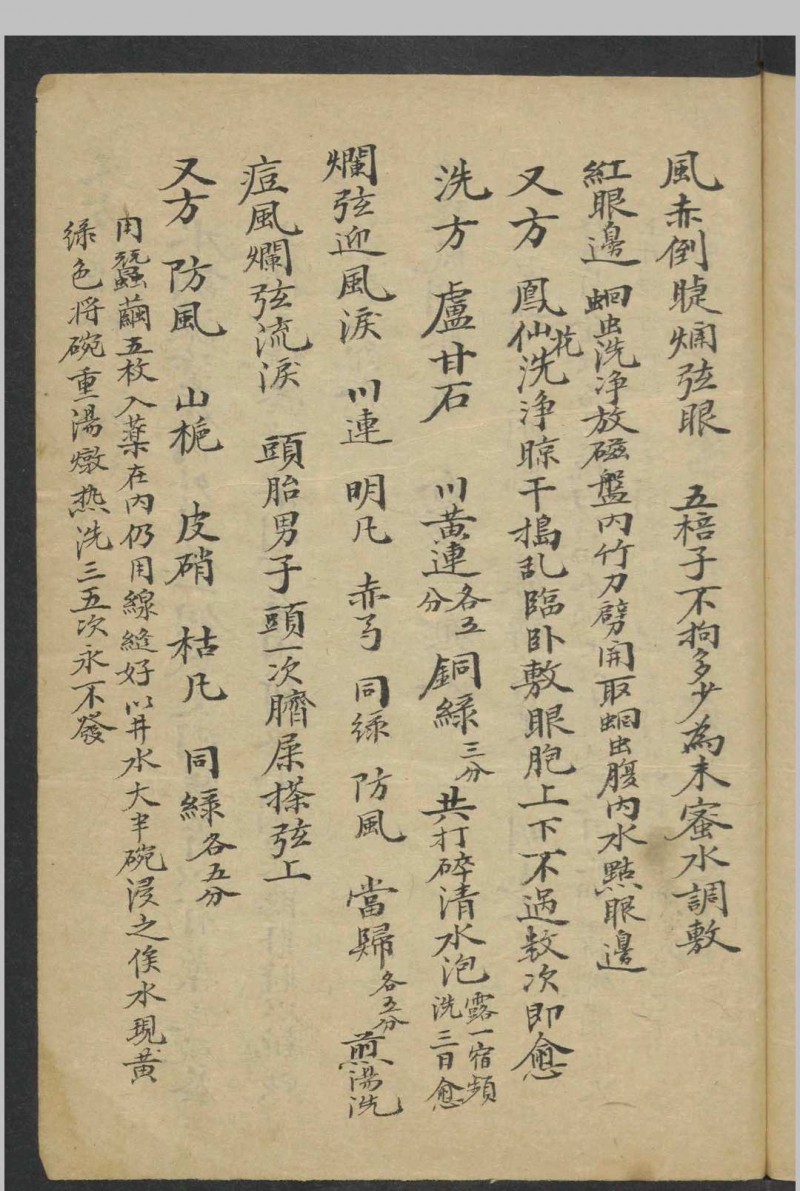 風赤倒睫烱弦眼 五棓子不拘多少為末蜜水調敷
紅眼邊 蛔虫洗净放磁盤内竹刀劈開取蛔虫腹内水點眼邊
又方 鳳仙花洗净晾干搗乱臨卧敷眼胞上下不過数次即愈
洗方 盧甘石 川黄連各五分 銅緑三分 共打碎清水泡露一宿頻洗三日愈
爛弦迎風淚 川連 明凡 赤芍 同緑 防風 當歸各五分 煎湯洗
痘風爛弦流淚 頭胎男子頭一次臍屎搽弦上
又方 防風 山梔 皮硝 枯凡 同緑各五分
用蠶繭五枚入藥在内仍用線縫好以井水大半碗浸之俟水現黄
緑色将碗重湯燉热洗三五次永不發